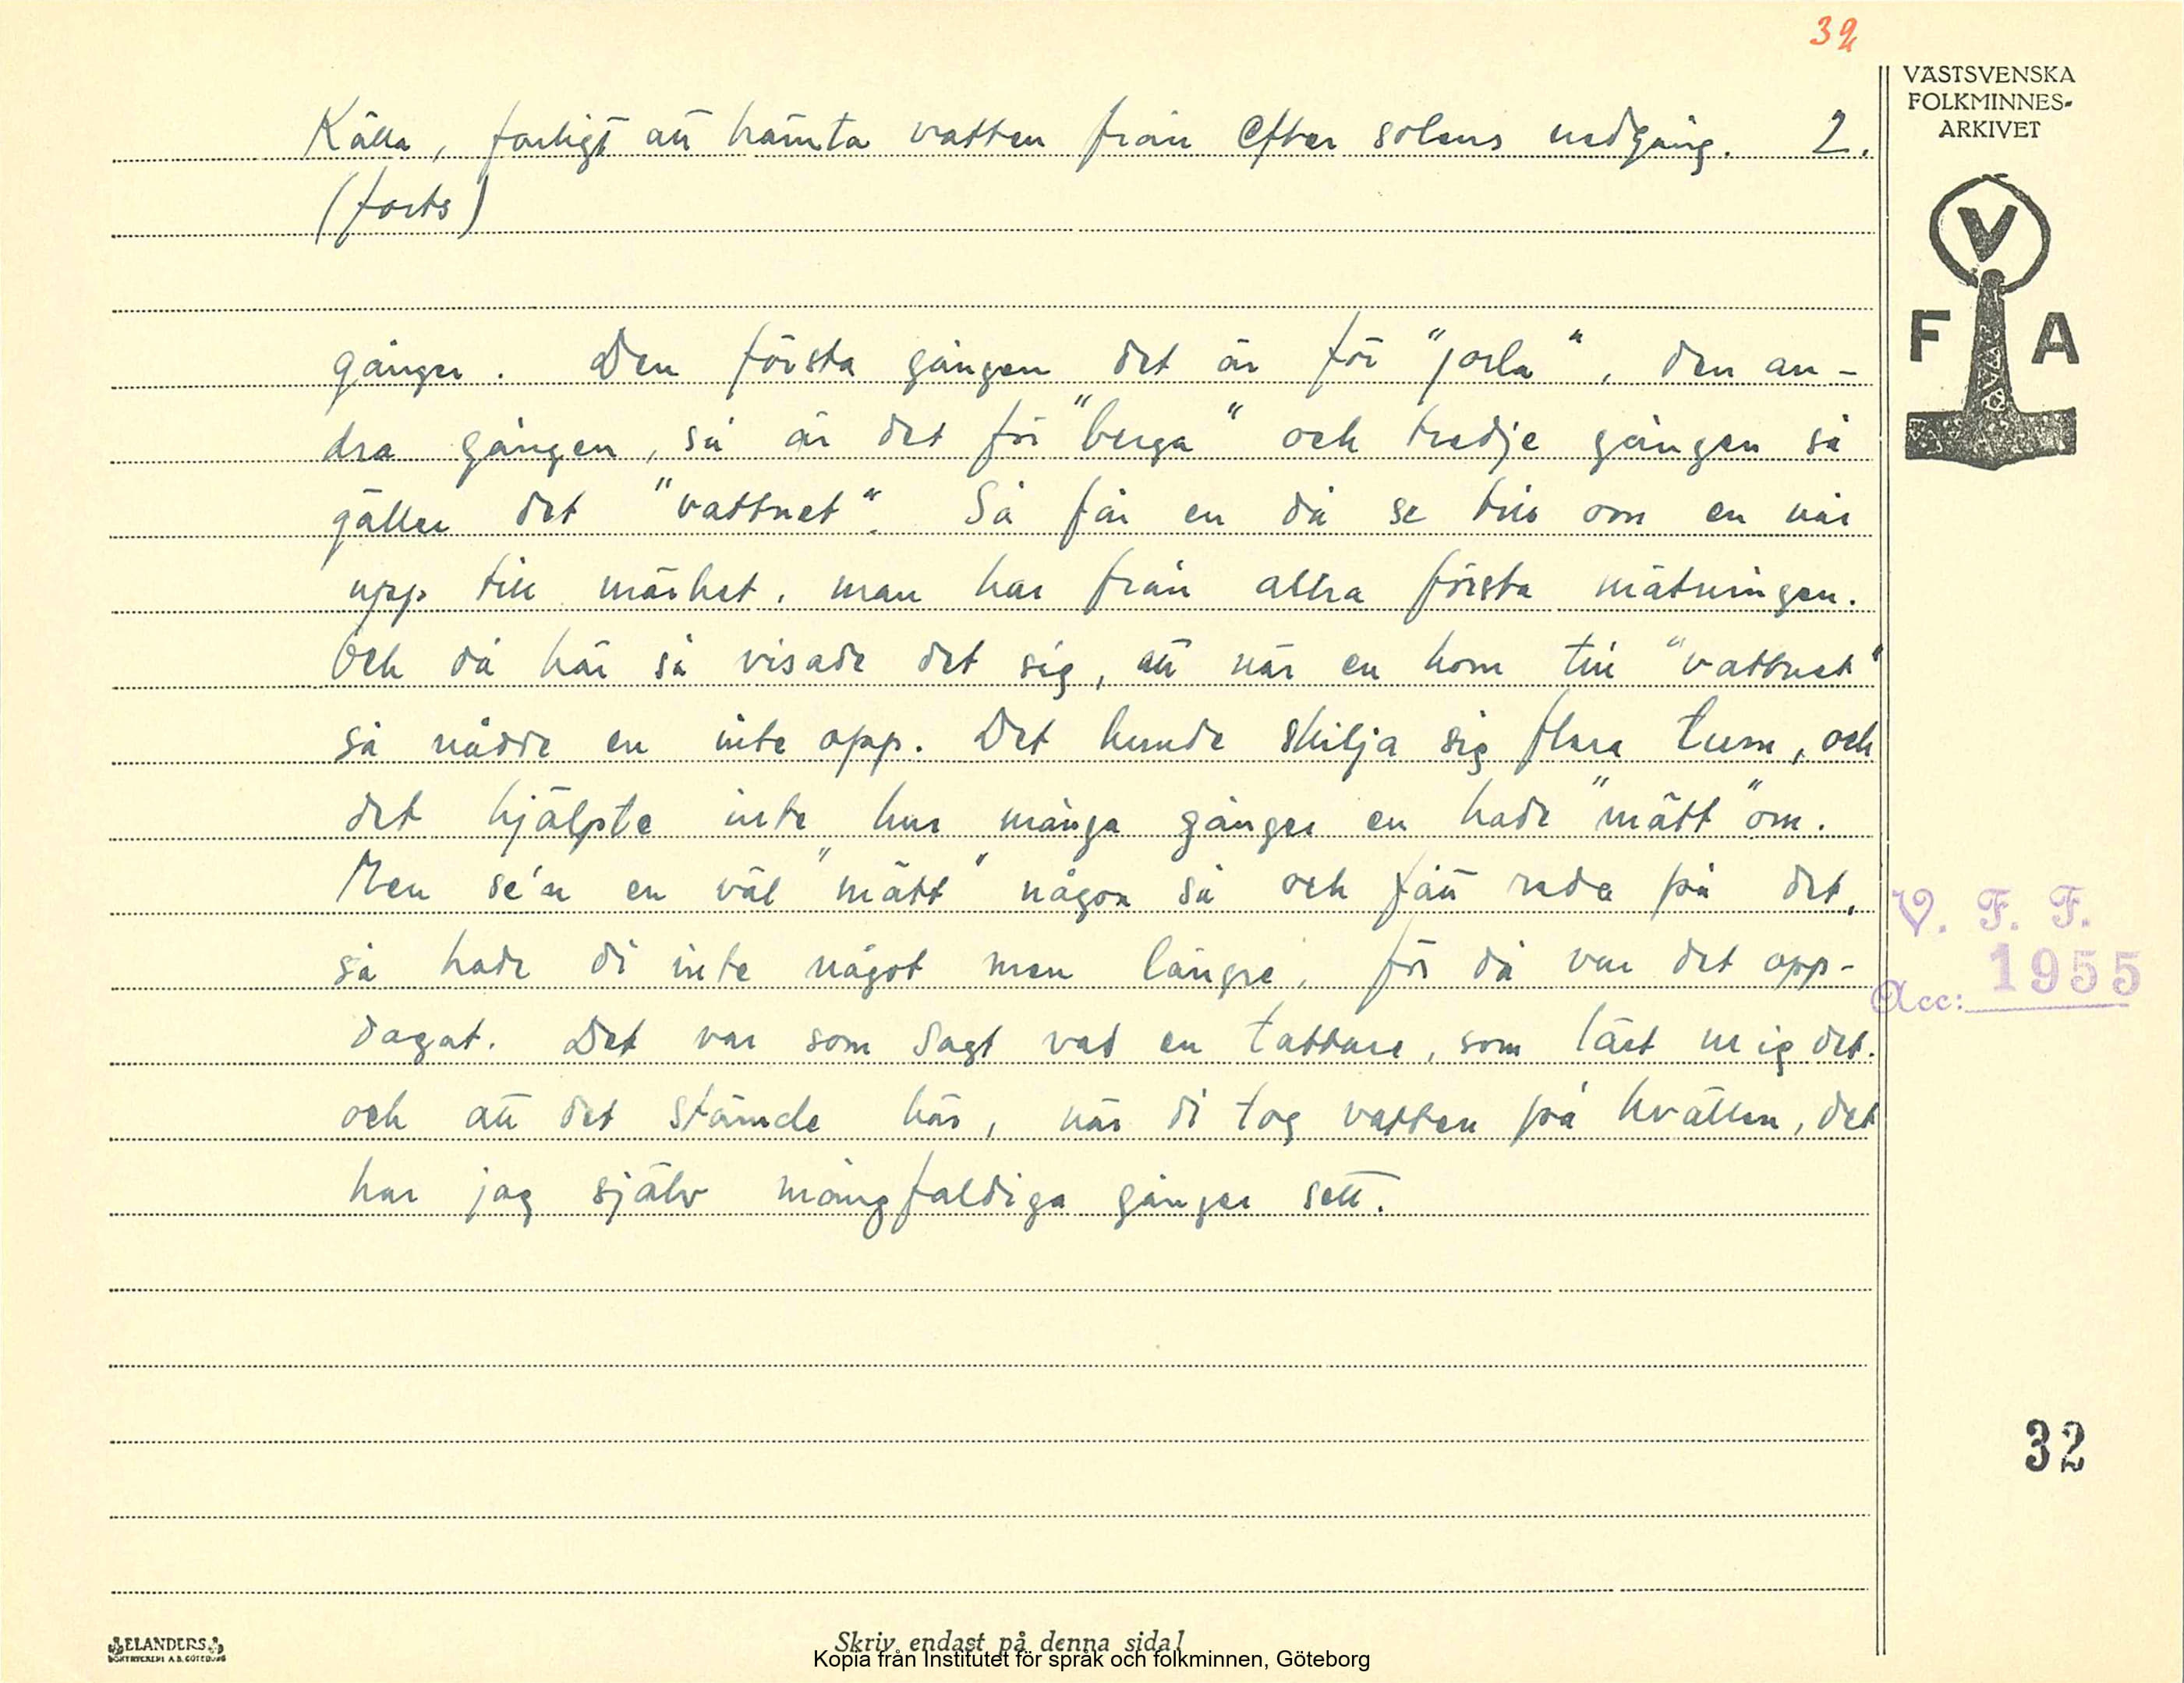 32
VÄSTSVENSKA
FOLKMINNES-
ARKIVET
V
F A
Källa, farligt att hämta vatten från efter solens nedgång. 2.
(forts)
gånger. Den första gången det är för "jorla", den an-
dra gången, så är det för "berga" och tredje gången så
gäller det "vattnet". Så får en då se till om en når
upp till märket, man har från allra första mätningen.
Och då här så visade det sig, att när en kom till "vattnet"
så nådde en inte opp. Det kunde skilja sig flera tum, och
det hjälpte inte hur många gånger en hade "mätt" om.
Men se'n en väl "mätt" någon så och fått reda på det,
så hade di inte något men längre, för då var det opp-
dagat. Det var som sagt vat en tattare, som lärt mig det.
och att det stämde här, när di tog vatten på kvällen, det
har jag själv mångfaldiga gånger sett.
V. F. F.
Acc: 1955
32
ELANDERS
BOKTRYCKERI A.B. GÖTEBORG
Skriv endast på denna sida!
Kopia från Institutet för språk och folkminnen, Göteborg